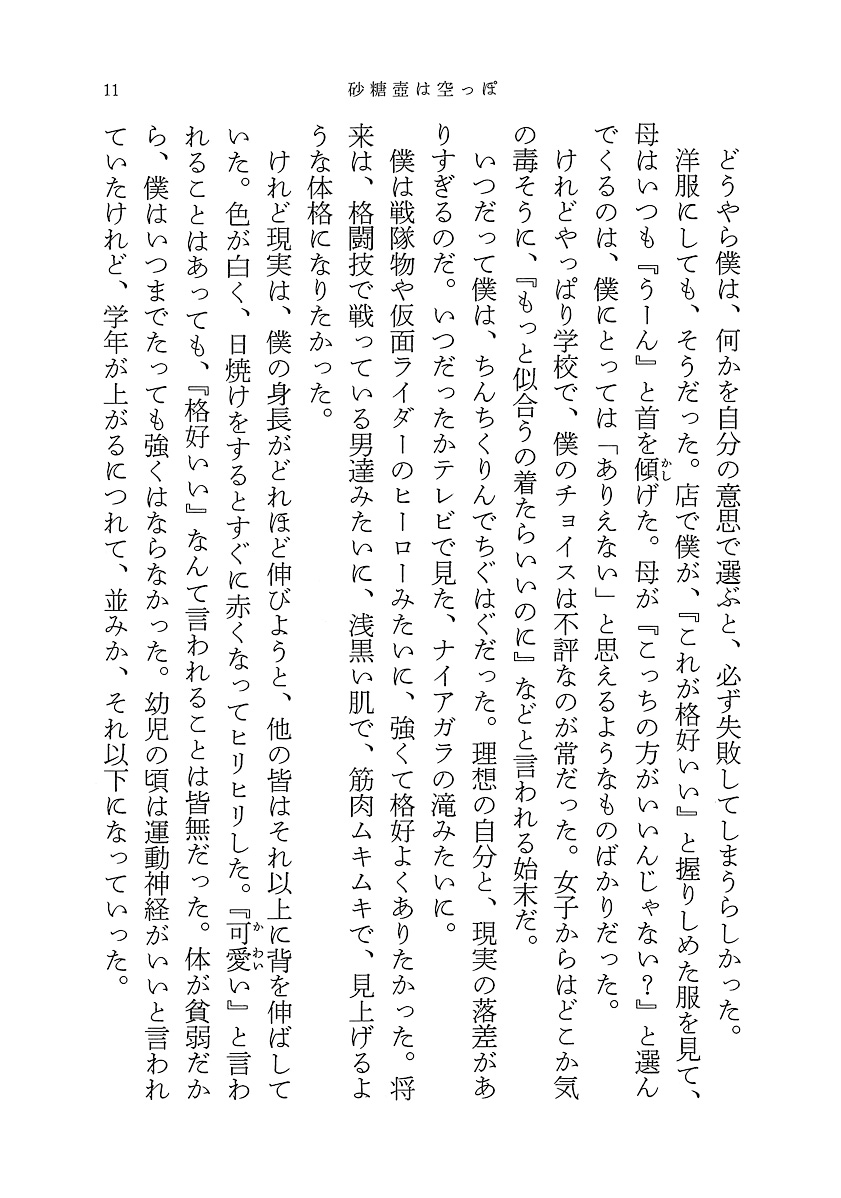 11
砂糖壺は空っぽ
どうやら僕は、何かを自分の意思で選ぶと、必ず失敗してしまうらしかった。
洋服にしても、そうだった。店で僕が、『これが格好いい』と握りしめた服を見て、
母はいつも『うーん』と首を傾げた。母が『こっちの方がいいんじゃない？』と選ん
でくるのは、僕にとっては「ありえない」と思えるようなものばかりだった。
けれどやっぱり学校で、僕のチョイスは不評なのが常だった。女子からはどこか気
の毒そうに、『もっと似合うの着たらいいのに』などと言われる始末だ。
いつだって僕は、ちんちくりんでちぐはぐだった。理想の自分と、現実の落差があ
りすぎるのだ。いつだったかテレビで見た、ナイアガラの滝みたいに。
僕は戦隊物や仮面ライダーのヒーローみたいに、強くて格好よくありたかった。将
来は、格闘技で戦っている男達みたいに、浅黒い肌で、筋肉ムキムキで、見上げるよ
うな体格になりたかった。
けれど現実は、僕の身長がどれほど伸びようと、他の皆はそれ以上に背を伸ばして
いた。色が白く、日焼けをするとすぐに赤くなってヒリヒリした。『可愛い』と言わ
れることはあっても、『格好いい』なんて言われることは皆無だった。体が貧弱だか
ら、僕はいつまでたっても強くはならなかった。幼児の頃は運動神経がいいと言われ
ていたけれど、学年が上がるにつれて、並みか、それ以下になっていった。